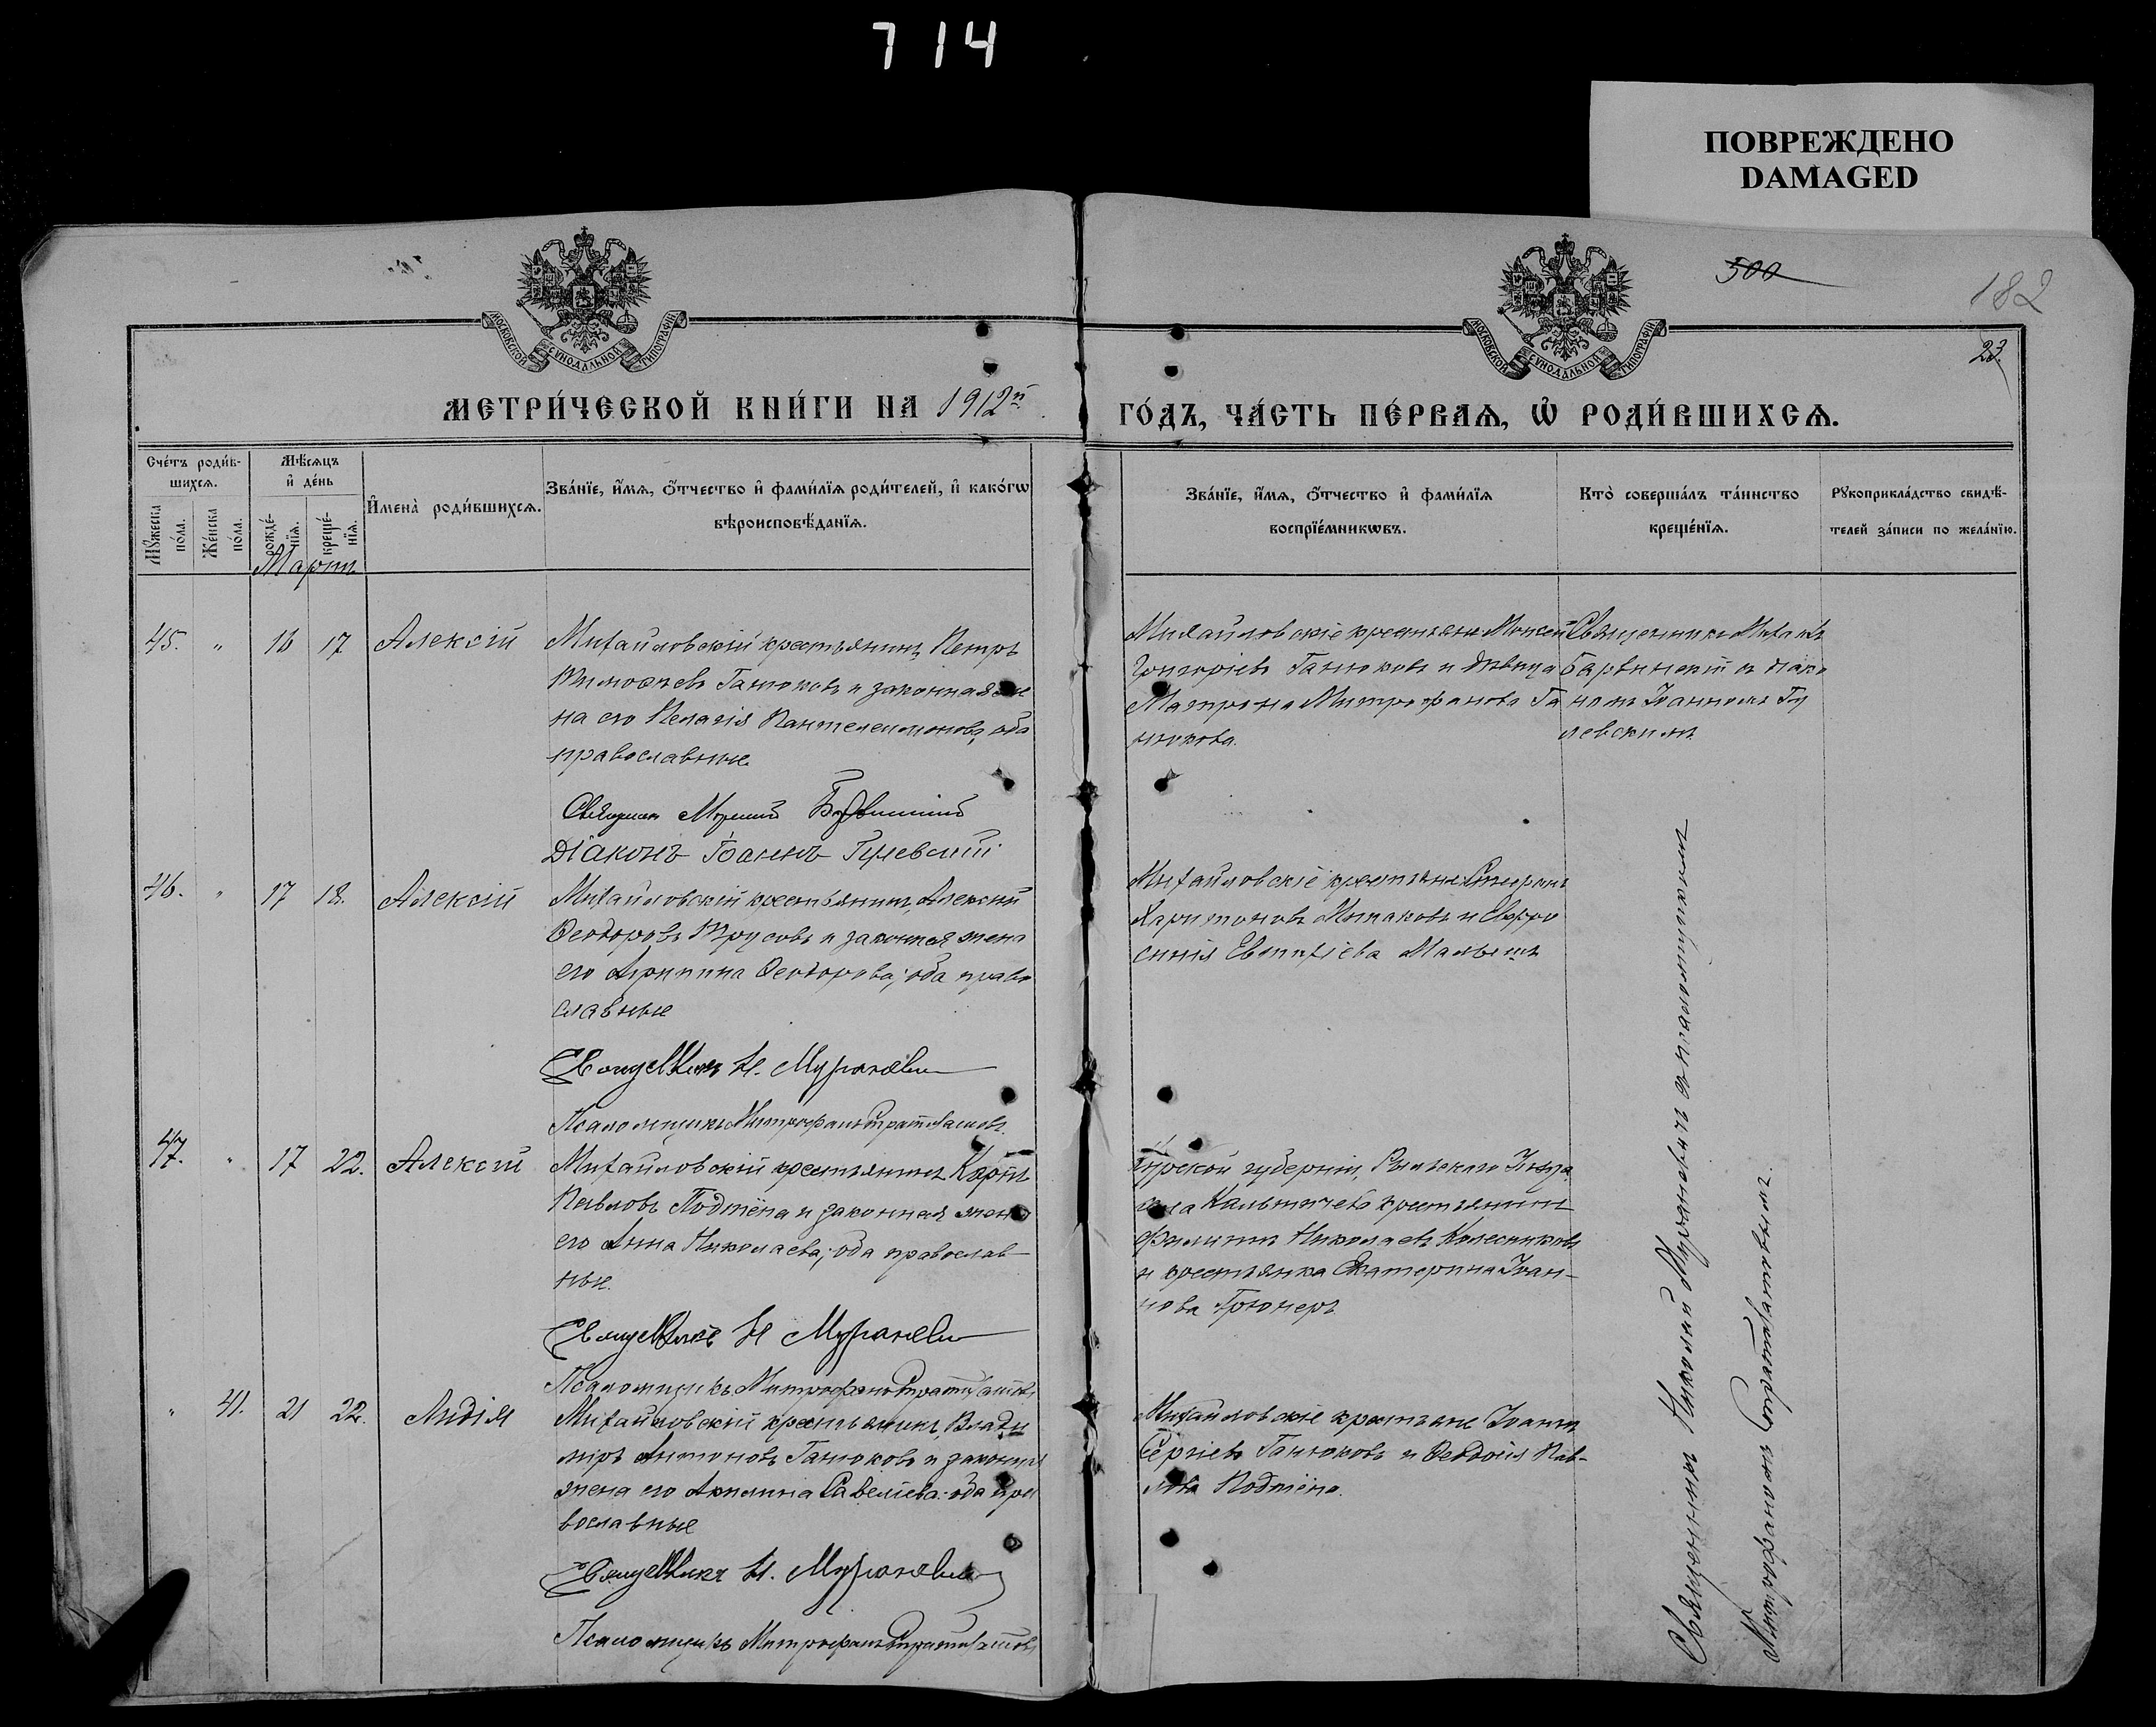 714
ПОВРЕЖДЕНО
DAMAGED
500
182
23.
МОСКОВСКОЙ СѴНОДАЛЬНОЙ ТИПОГРАФІИ
МОСКОВСКОЙ СѴНОДАЛЬНОЙ ТИПОГРАФІИ
МЕТРИ́ЧЕСКОЙ КНИ́ГИ НА 1912й
ГО́ДЪ, ЧА́СТЬ ПЕ́РВАѦ, Ѡ҆ РОДИ́ВШИХСѦ.
Сче́тъ роди́в-
шихсѧ.
Мꙋ́жеска по́ла.
Же́нска по́ла.
Мѣ́сѧцъ
и҆ де́нь
рожде́-нїѧ.
креще́-нїѧ.
И҆мена̀ роди́вшихсѧ.
Зва́нїе, и҆́мѧ, ѻ҆́тчество и҆ фами́лїѧ роди́телей, и҆ како́гѡ
вѣроисповѣ́данїѧ.
Зва́нїе, и҆́мѧ, ѻ҆́тчество и҆ фами́лїѧ
воспрїе́мникѡвъ.
Кто̀ соверша́лъ та́инство
креще́нїѧ.
Рꙋкоприкла́дство свидѣ́-
телей за́писи по жела́нїю.
Мартъ
45. " 16 17 Алексій
Михайловскій крестьянинъ Петръ
Тимоѳеевъ Ганюковъ и законная же
на его Пелагія Пантелеимонова, оба
православные.
Священникъ Михаилъ Барвинскій
Діаконъ Іоаннъ Гулевскій
Михайловскіе крестьяне Моисей
Григоріевъ Ганюковъ и дѣвица
Матрона Митрофанова Га
нюкова.
Священникъ Михаилъ
Барвинскій съ діако
номъ Іоанномъ Гу
левскимъ
46. " 17 18. Алексій
Михайловскій крестьянинъ, Алексій
Ѳеодоровъ Трусовъ и законная жена
его Агрипина Ѳеодорова; оба право
славные
Священникъ Н. Мураневи
Псаломщикъ Митрофанъ Стратилатовъ.
Михайловскіе крестьяне Спиридонъ
Харитоновъ Минаковъ и Евфро
синія Евтихіева
47. " 17 22. Алексій
Михайловскій крестьянинъ Карпъ
Павловъ Подтёпа и законная жена
его Анна Николаева; оба православ-
ные.
Священникъ Н Мураневи
Псаломщикъ Митрофанъ Стратилатовъ
Курской губерніи, Рыльскаго Уѣзда
села крестьянинъ
Филиппъ Николаевъ Колесниковъ
и крестьянка Екатерина Іоан-
нова
" 41. 21 22. Лидія
Михайловскій крестьянинъ, Влади
міръ Антоновъ Ганюковъ и законная
жена его Акилина Савеліева: оба пра
вославные
Священникъ Н. Мураневи
Псаломщикъ Митрофанъ Стратилатовъ
Михайловскіе крестьяне Іоаннъ
Сергіевъ Ганюковъ и Ѳеодосія Пав-
лова Подтёпа.
Священникъ Николай Мураневичъ съ псаломщикомъ
Митрофаномъ Стратилатовымъ.